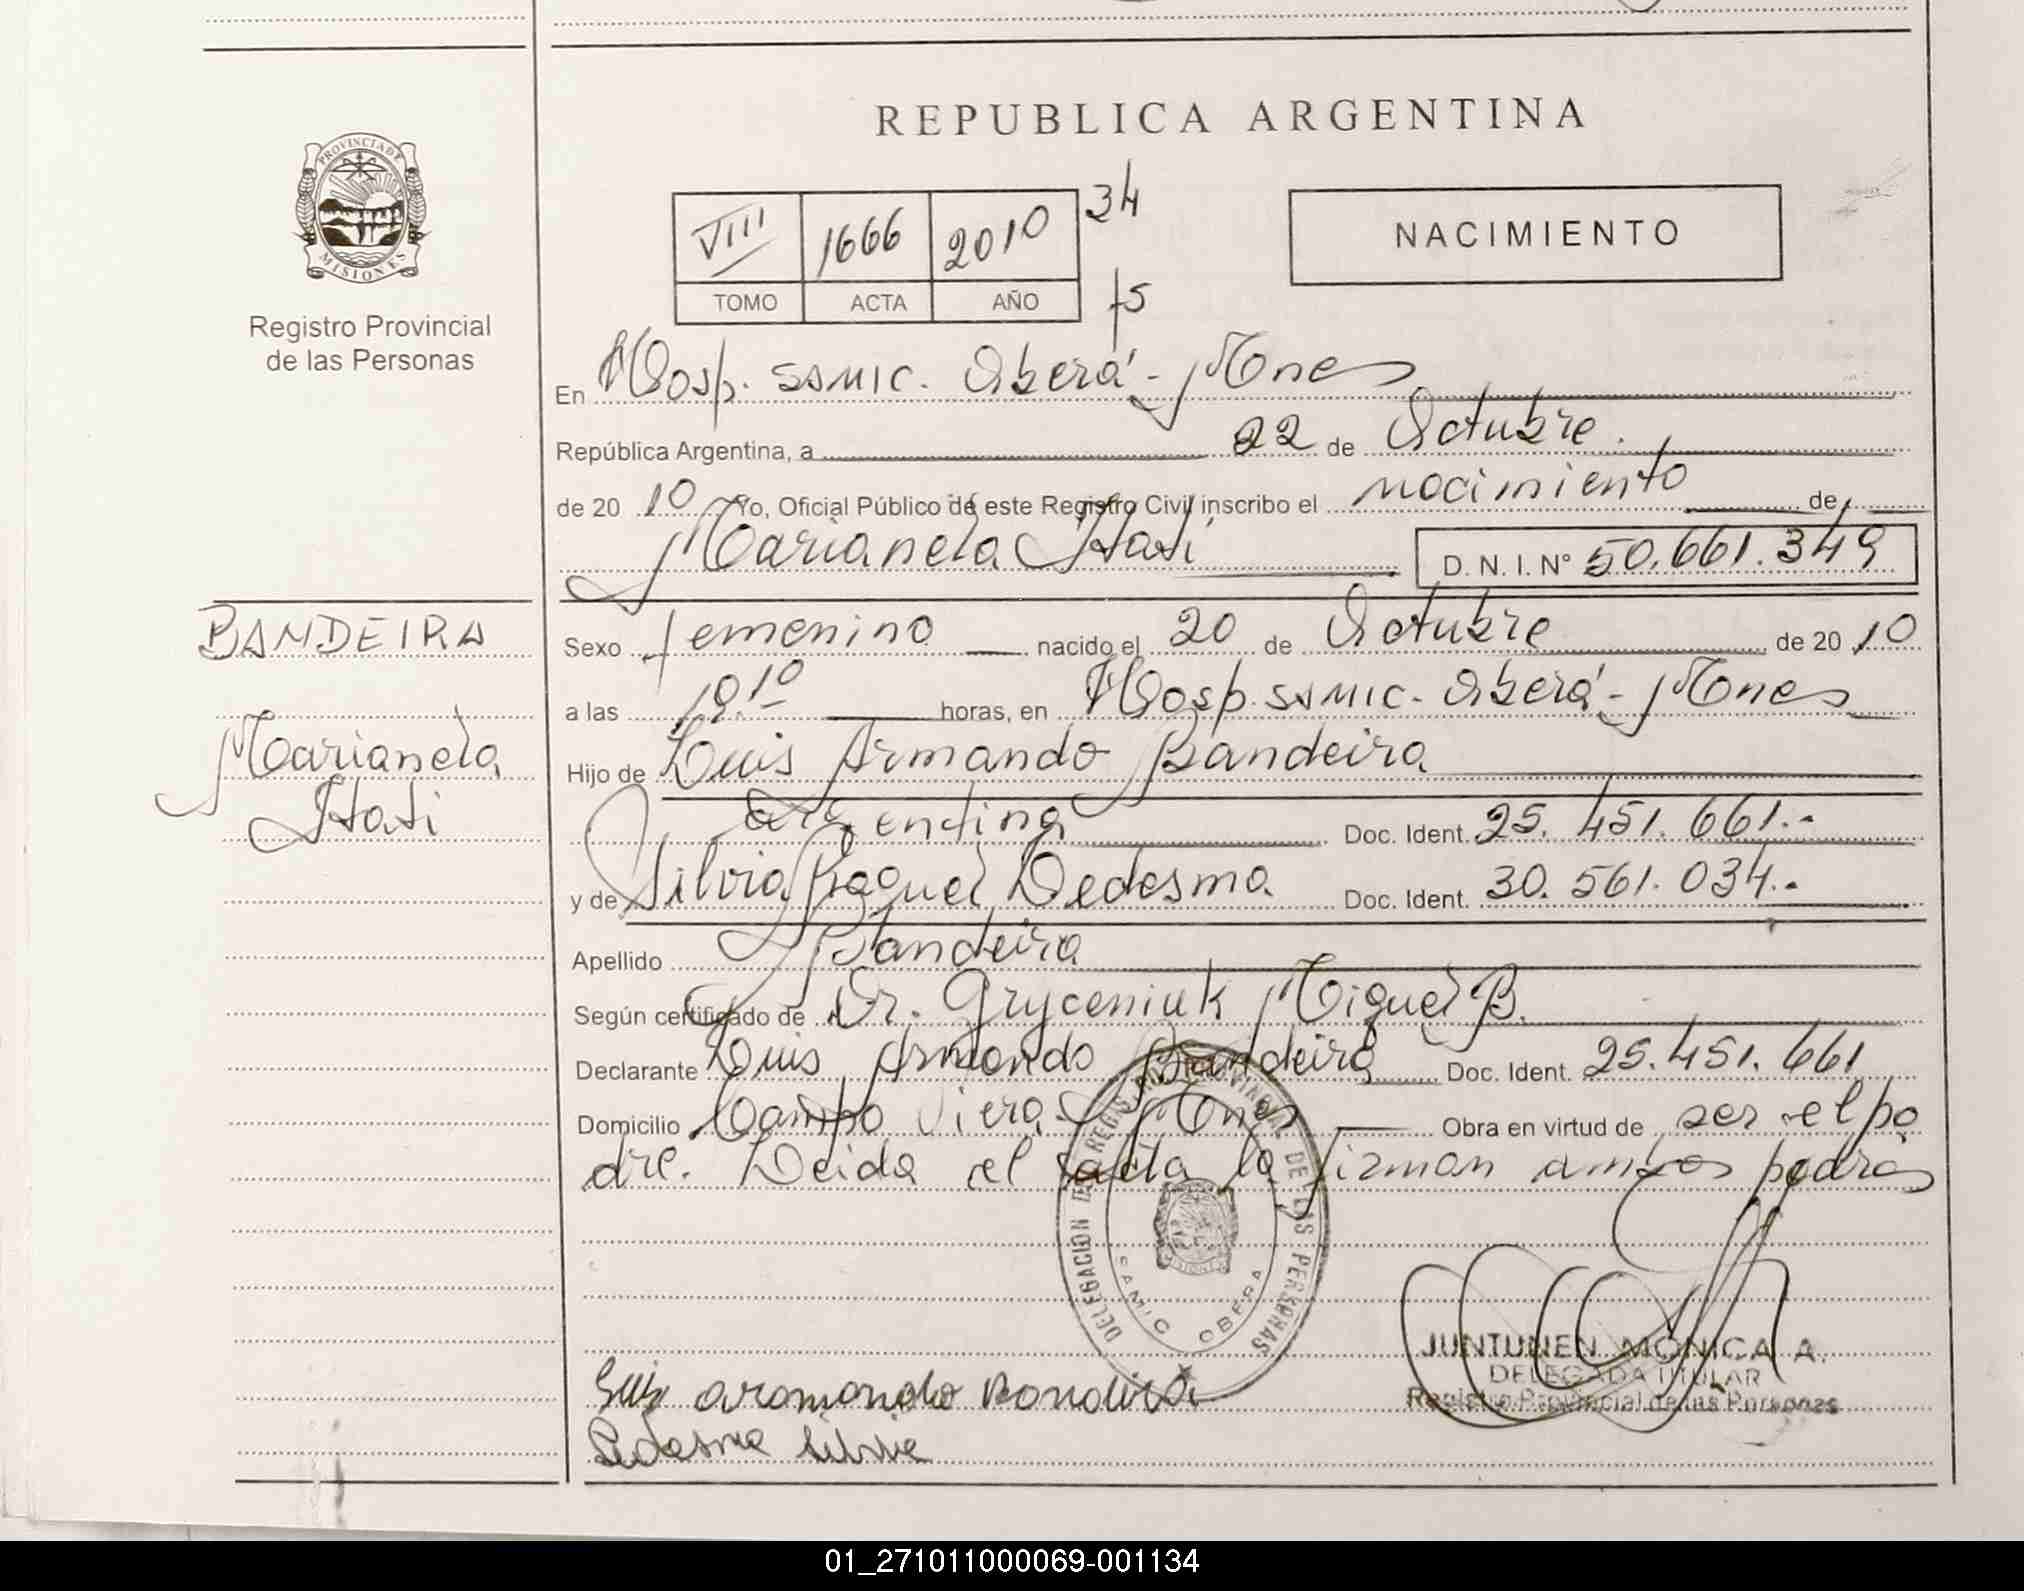 REPUBLICA ARGENTINA
PROVINCIA DE MISIONES
Registro Provincial
de las Personas
VIII 1666 2010 34
TOMO ACTA AÑO f5
NACIMIENTO
En Hosp. SSMIC. Oberá - Mnes
República Argentina, a 22 de Octubre.
de 2010 Yo, Oficial Público de este Registro Civil inscribo el nacimiento de
Marianela Itatí D. N. I. Nº 50.661.349
BANDEIRA
Marianela
Itati
Sexo femenino nacido el 20 de Octubre de 2010
a las 19.10 horas, en Hosp. SSMIC. Oberá - Mnes
Hijo de Luis Armando Bandeira
argentina Doc. Ident. 25.451.661.-
y de Silvia Raquel Ledesma Doc. Ident. 30.561.034.-
Apellido Bandeira
Según certificado de Dr. Gryceniuk Miguel B.
Declarante Luis Armando Bandeira Doc. Ident. 25.451.661
Domicilio Campo Viera - Mnes Obra en virtud de ser el pa
dre. Leida el acta la firman ambos padres
DELEGACION DEL REGISTRO PROVINCIAL DE LAS PERSONAS
SAMIC OBERA
JUNTUNEN MONICA A.
DELEGADA TITULAR
Registro Provincial de las Personas
Luis aromando Bondeira
Ledesma Silvia
01_271011000069-001134